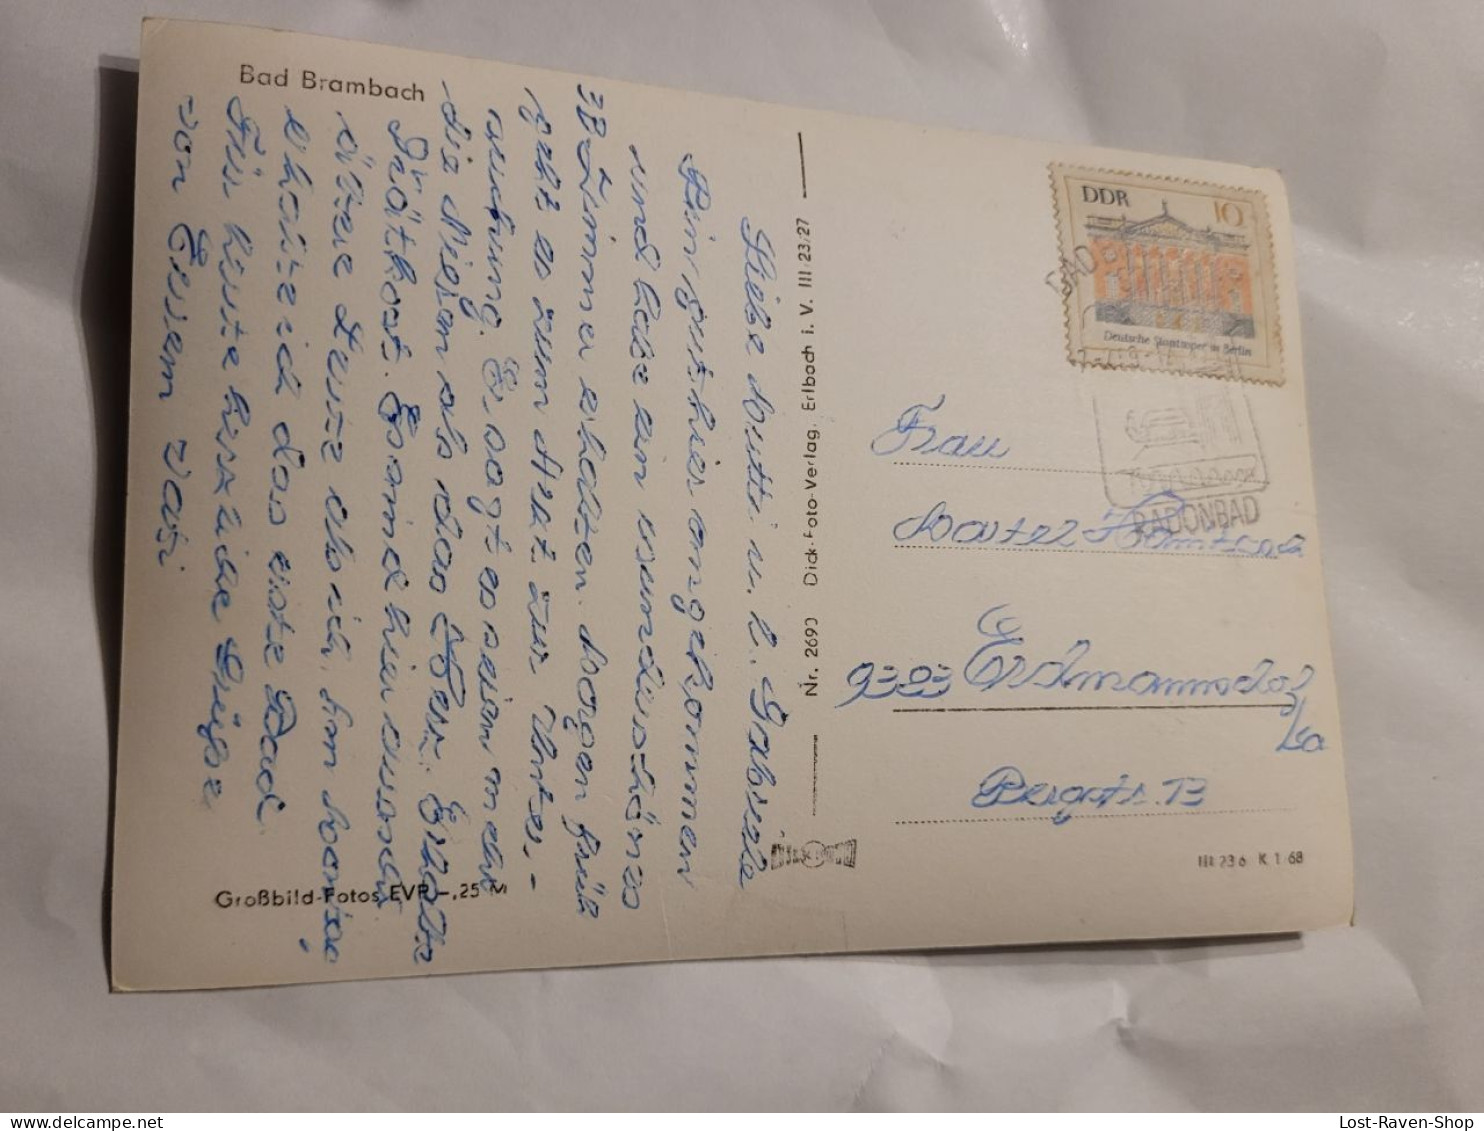 Bad Brambach
Liebe Mutti u. l. Gabriele
Bin gut hier angekommen
und habe ein wunderschönes
3B Zimmer erhalten. Morgen früh
geht es zum Arzt zur Unter-
suchung. E. sagt es seien mehr
die Nieren als das Herz. Erhalte
Diätkost. Es sind hier durch
ältere Leute als ich. Am
erhalte ich das erste Bad.
Für heute herzliche Grüße
von Eurem Vati
Großbild-Fotos EVP -,25 M
Nr. 2693 Dick-Foto-Verlag, Erlbach i. V. III/23/27
DDR 10
Deutsche Staatsoper in Berlin
BAD
RADONBAD
Frau
9383 Erdmannsdorf
Bergstr. 13
III 23 6 K 1 68
Lost-Raven-Shop